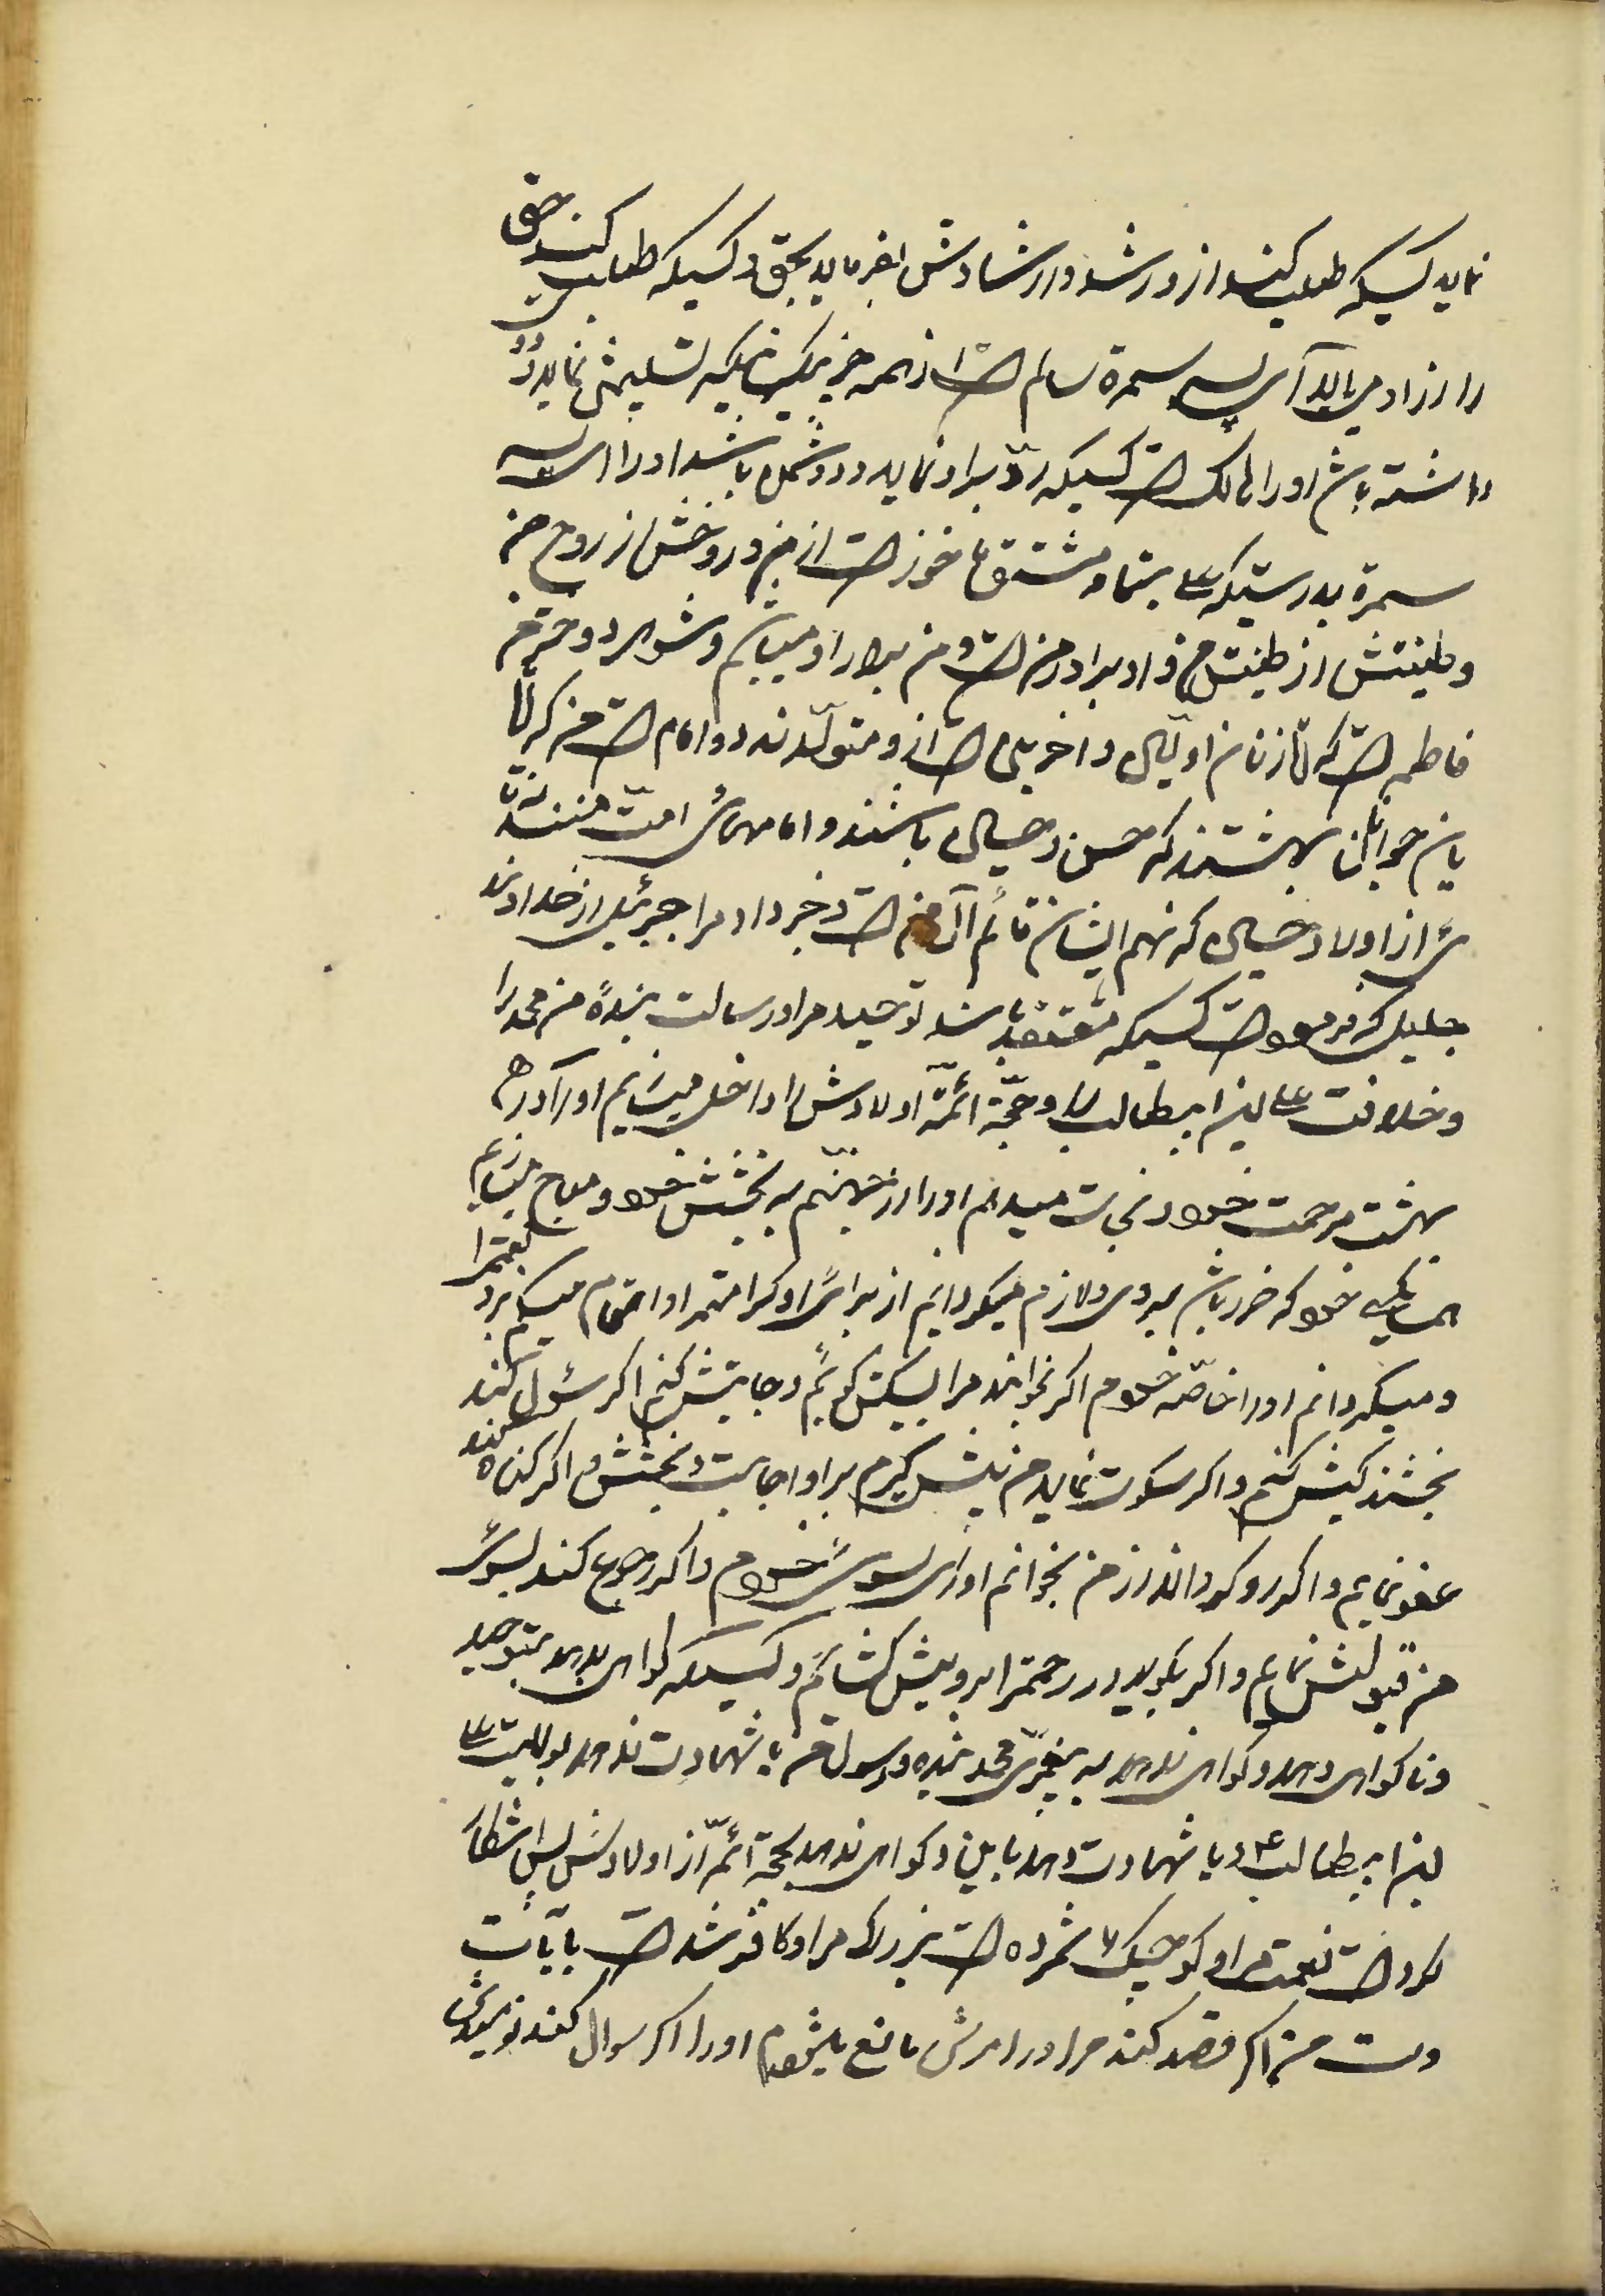 نماید کسیکه طلب کند از و رشد و ارشادش بفرماید بحق و کسیکه طلب کند حق
را از او می یابد آی پسر سمرة سالم است از همه خیر یکیکه تسلیمش نماید و دو
داشته باش اورا هالک است کسیکه ردّ براو نماید و دشمن باشد اورا ای پسر
سمرة بدرستیکه علی بنماء مشتق ما خوذ است از من و روحش از روح من
وطینتش از طینت من و او برادر من است و من برادر او میباشم و شوهر دختر من
فاطمه است که از زنان اولین و اخرین است از و متولّدند دو امام است من که
یان جوانان بهشتند که حسن و حسین باشند و امامهای امت منند نه تا
ی از اولاد حسین که نهم ایشان قائم آل من است و خبر داد مرا جبرئیل از خداوند
جلیل که فرموده است کسیکه معتقد باشد توحید مرا و رسالت بندهٔ من محمد را
و خلافت علی ابن ابیطالب را و حجّة ائمّه اولادش را داخل میسازیم اورا در
بهشت برحمت خود و نجات میدهم اورا از جهنّم به بخشش خود و مباح میسازیم
همسایگی خود که خود باش بروی و لازم میکردانیم از برای او کرامتمرا و اتمام میکنم برو نعمتمرا
و میکردانم اورا خاصّه خودم اکر بخواند مرا لبیکش کویم و اجابتش کنم اکر سئول کند
بخشند کیش کنم و اکر سکوت نماید من پیش کیرم براو اجابت و بخشش و اکر کناه کند
عفو نمایم و اکر رو کرداند از من بخوانم اورا بسوی خودم و اکر رجوع کند بسوی
من قبولش نمایم و اکر بکوبد در رحمتمرا برویش کشایم و کسیکه کواهی بدهد بتوحید
ونا کواهی دهد و کواهی ندهد به پیغمبری محمد بنده و رسول من یا شهادت ندهد بولایت علی
ابن ابیطالب ع و یا شهادت دهد باین و کواهی ندهد بحجة ائمّه از اولادش پس انکار
کرده است نعمت مرا و کوچیک شمرده است بزرکی مرا و کافر شده است بآیات
وت من اکر قصد کند مرا در امرش مانع میشوم اورا اکر سوال کند نومیدش